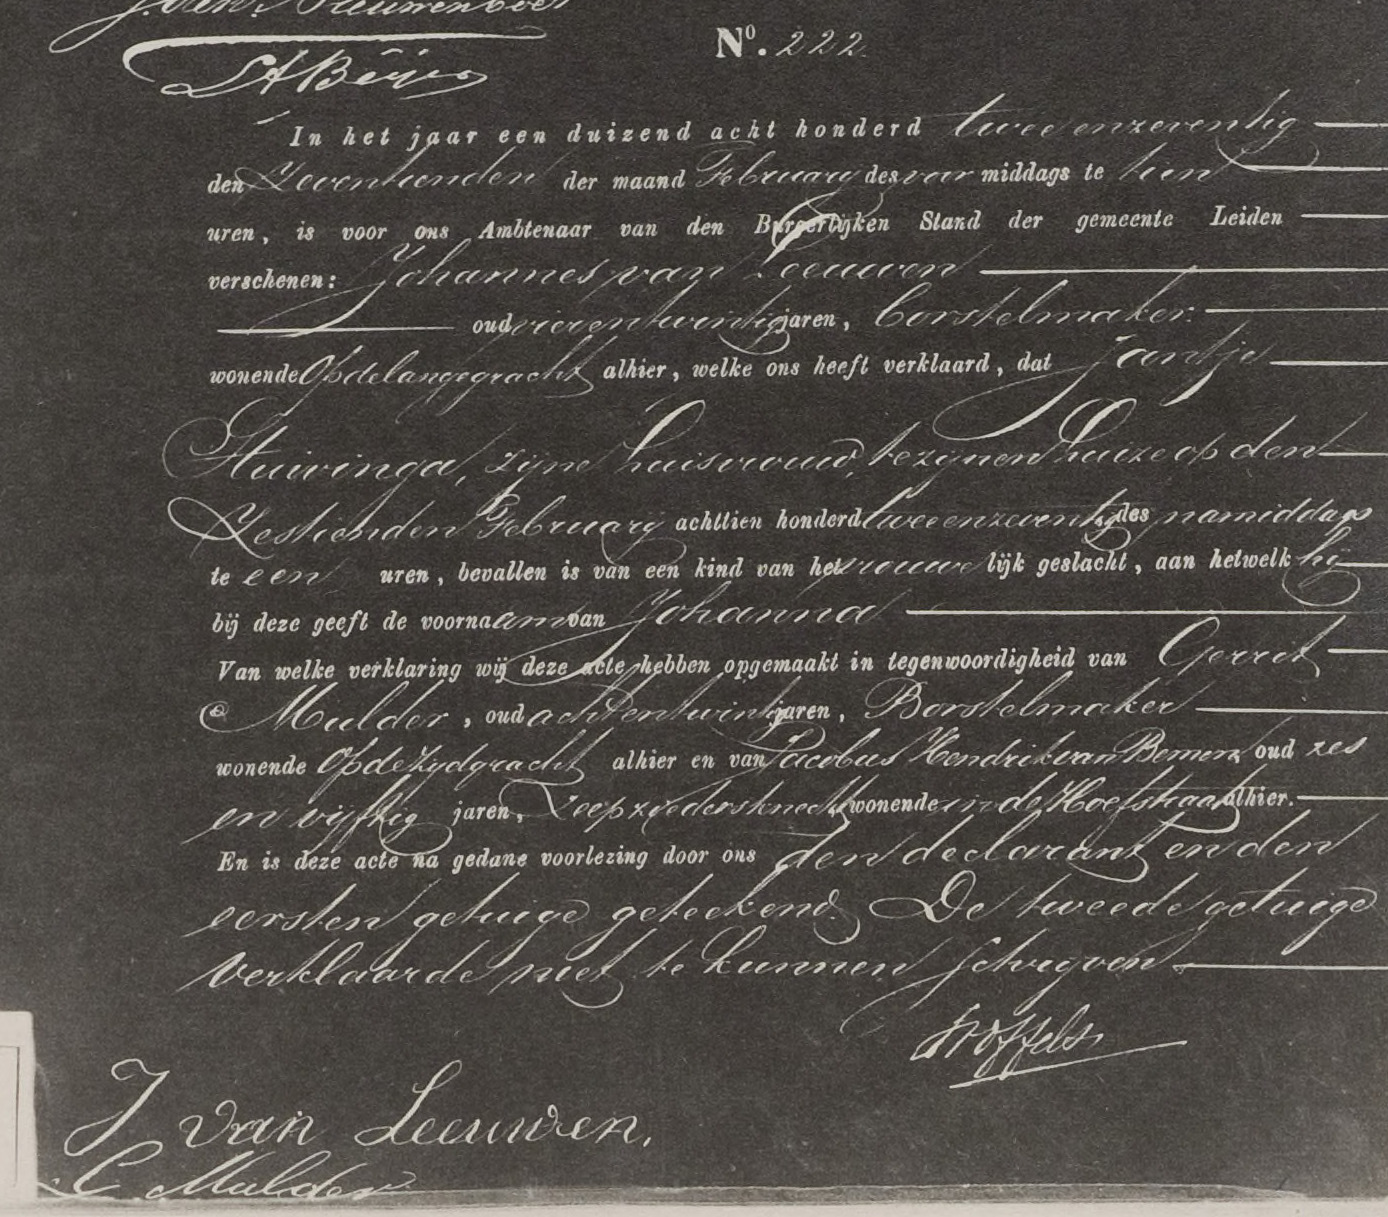 No. 222.
In het jaar een duizend acht honderd tweeenzeventig
den Zeventienden der maand Februarij des voor middags te tien
uren, is voor ons Ambtenaar van den Burgerlijken Stand der gemeente Leiden
verschenen: Johannes van Leeuwen
oud vierentwintig jaren, borstelmaker
wonende Op de langegracht alhier, welke ons heeft verklaard, dat Jantje
Stuivinga, zijne huisvrouw, te zijnen huize op den
Zestienden Februarij achttien honderd tweeenzeventig des namiddags
te een uren, bevallen is van een kind van het vrouwelijk geslacht, aan hetwelk hij
bij deze geeft de voornaam van Johanna
Van welke verklaring wij deze acte hebben opgemaakt in tegenwoordigheid van Gerrit
Mulder, oud achtentwintig jaren, Borstelmaker
wonende Op de Zijdgracht alhier en van Jacobus Hendrik van Bemen oud zes
en vijftig jaren, Zeepziedersknecht wonende in de Hoefstraat alhier.
En is deze acte na gedane voorlezing door ons den declarant en den
eersten getuige geteekend. De tweede getuige
verklaarde niet te kunnen schrijven
J van Leeuwen.
Mulder